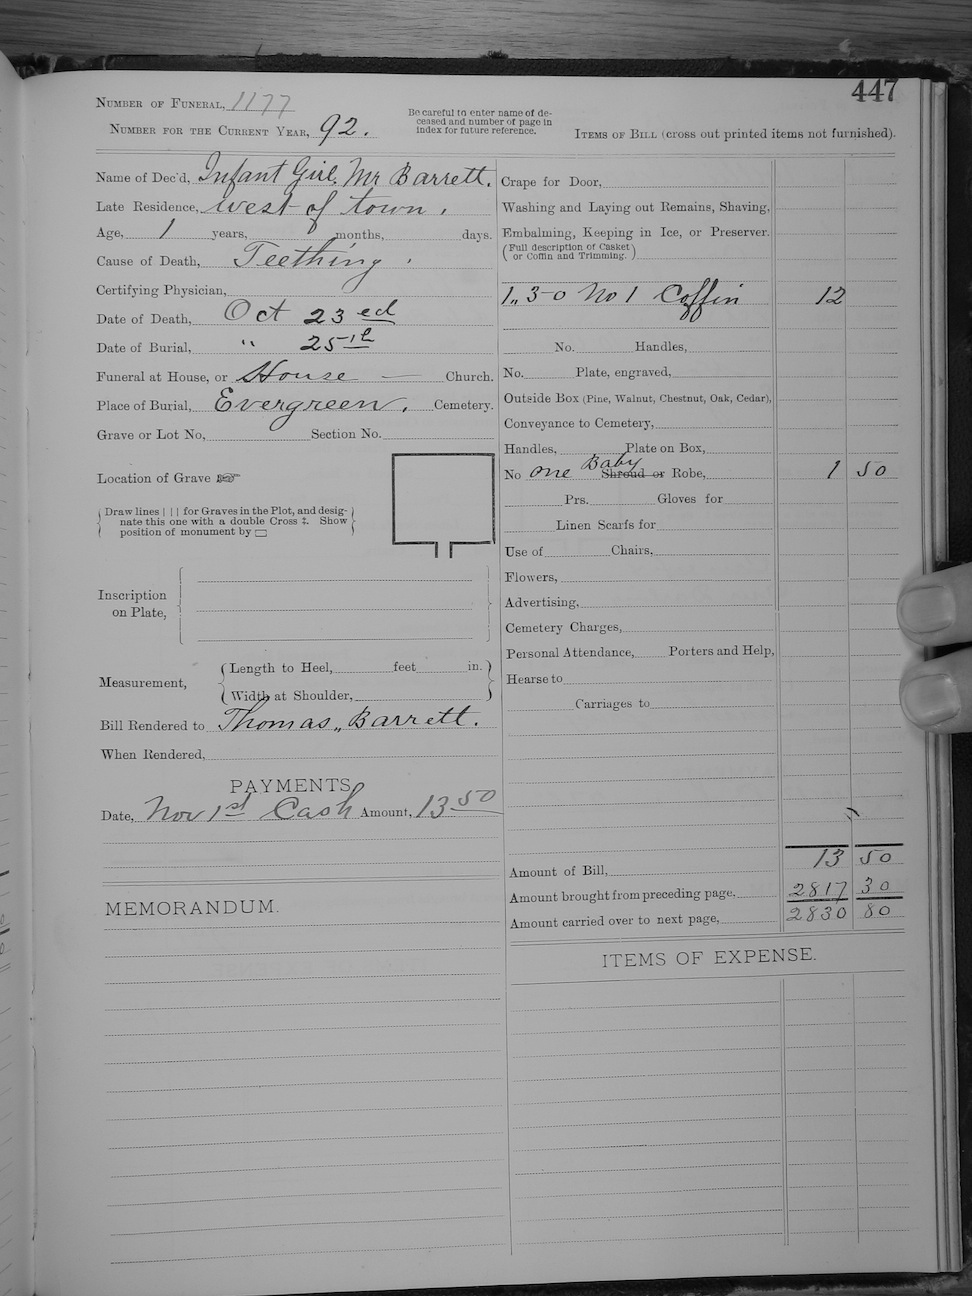 447
Number of Funeral, 1177
Number for the Current Year, 92.
Be careful to enter name of de-
ceased and number of page in
index for future reference.
Items of Bill (cross out printed items not furnished).
Name of Dec'd, Infant Girl. Mr Barrett.
Late Residence, West of town.
Age, 1 years, months, days.
Cause of Death, Teething.
Certifying Physician,
Date of Death, Oct 23ed
Date of Burial, " 25th
Funeral at House, or House — Church.
Place of Burial, Evergreen. Cemetery.
Grave or Lot No, Section No.
Location of Grave ☞
Draw lines | | | for Graves in the Plot, and desig-
nate this one with a double Cross ‡. Show
position of monument by ▭
Inscription
on Plate,
Measurement,
Length to Heel, feet in.
Width at Shoulder,
Bill Rendered to Thomas,, Barrett.
When Rendered,
PAYMENTS
Date, Nov 1st Cash Amount, 13 50
MEMORANDUM.
Crape for Door,
Washing and Laying out Remains, Shaving,
Embalming, Keeping in Ice, or Preserver.
(Full description of Casket
or Coffin and Trimming.)
1,, 3-0 No 1 Coffin 12
No. Handles,
No. Plate, engraved,
Outside Box (Pine, Walnut, Chestnut, Oak, Cedar),
Conveyance to Cemetery,
Handles, Plate on Box,
No one Baby Shroud or Robe, 1 50
Prs. Gloves for
Linen Scarfs for
Use of Chairs,
Flowers,
Advertising,
Cemetery Charges,
Personal Attendance, Porters and Help,
Hearse to
Carriages to
Amount of Bill, 13 50
Amount brought from preceding page, 2817 30
Amount carried over to next page, 2830 80
ITEMS OF EXPENSE.